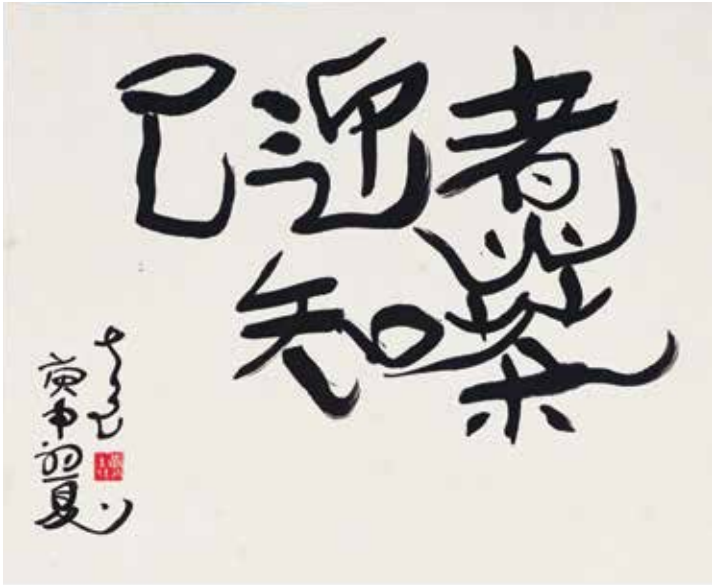 煮茶
迎知
己
庚申初夏